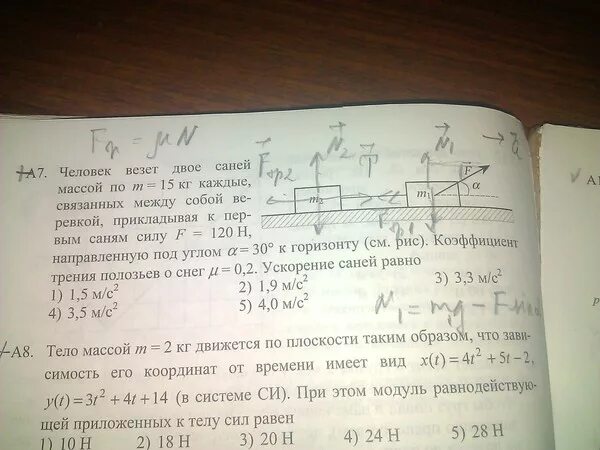 Fтр = μN
А7. Человек везет двое саней
массой по m = 15 кг каждые,
связанных между собой ве-
ревкой, прикладывая к пер-
вым саням силу F = 120 Н,
направленную под углом α = 30° к горизонту (см. рис). Коэффициент
трения полозьев о снег μ = 0,2. Ускорение саней равно
1) 1,5 м/с² 2) 1,9 м/с² 3) 3,3 м/с²
4) 3,5 м/с² 5) 4,0 м/с²
Fтр2 N2 T N1 a
F
m2 m1 α
Fтр1
N1 = m1g - F sin α
А8. Тело массой m = 2 кг движется по плоскости таким образом, что зави-
симость его координат от времени имеет вид x(t) = 4t² + 5t – 2,
y(t) = 3t² + 4t + 14 (в системе СИ). При этом модуль равнодействую-
щей приложенных к телу сил равен
1) 10 Н 2) 18 Н 3) 20 Н 4) 24 Н 5) 28 Н